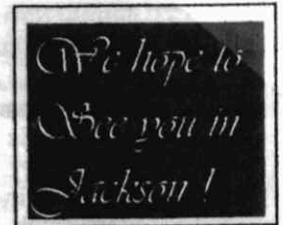 We hope to
See you in
Jackson !